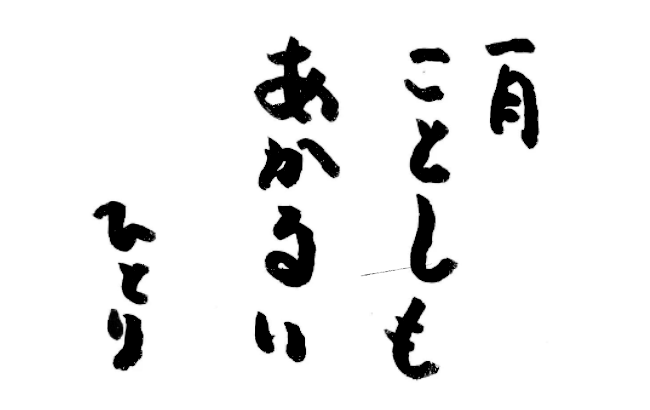 一月
ことしも
あかるい
ひとり